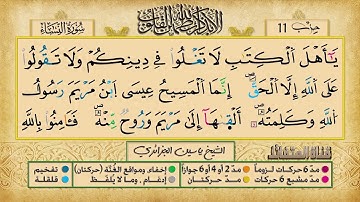 حزب 11
ألا بذكر الله تطمئن القلوب
سورة النساء
يَٰٓأَهْلَ ٱلْكِتَٰبِ لَا تَغْلُوا۟ فِى دِينِكُمْ وَلَا تَقُولُوا۟
عَلَى ٱللَّهِ إِلَّا ٱلْحَقَّ إِنَّمَا ٱلْمَسِيحُ عِيسَى ٱبْنُ مَرْيَمَ رَسُولُ
ٱللَّهِ وَكَلِمَتُهُۥٓ أَلْقَىٰهَآ إِلَىٰ مَرْيَمَ وَرُوحٌ مِّنْهُ فَـَٔامِنُوا۟ بِٱللَّهِ
الشيخ ياسين الجزائري
مدّ 6 حركات لزوماً مدّ 2 أو 4 أو 6 جوازاً إخفاء ومواقع الغُنَّة (حركتان) تفخيم
مدّ مشبع 6 حركات مدّ حركتان إدغام، وما لا يُلفظ قلقلة